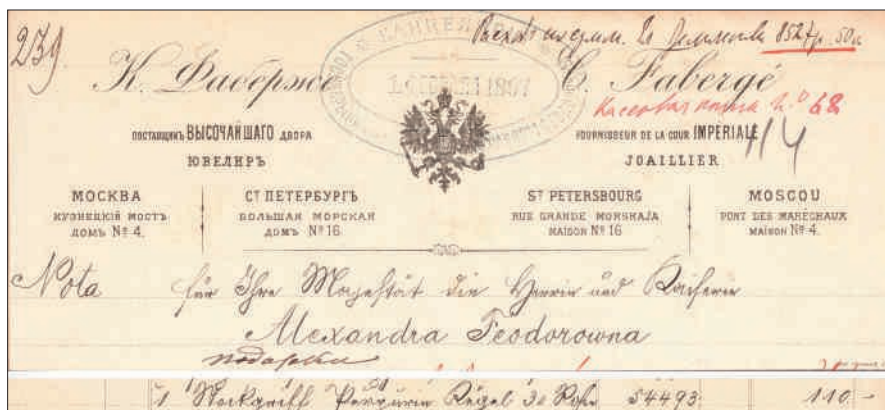 239
852 р. 50 к
К. Фаберже C. Fabergé
№ 68
114
ПОСТАВЩИКЪ ВЫСОЧАЙШАГО ДВОРА
ЮВЕЛИРЪ
FOURNISSEUR DE LA COUR IMPERIALE
JOAILLIER
МОСКВА
КУЗНЕЦКІЙ МОСТЪ
ДОМЪ № 4.
СТ ПЕТЕРБУРГЪ
БОЛЬШАЯ МОРСКАЯ
ДОМЪ № 16
ST PETERSBOURG
RUE GRANDE MORSKAJA
MAISON № 16
MOSCOU
PONT DES MARÉCHAUX
MAISON № 4.
Nota für Ihre Majestät die Herrin und Kaiserin
Alexandra Feodorowna
подарки
1 Stockgriff 54493. 110 -